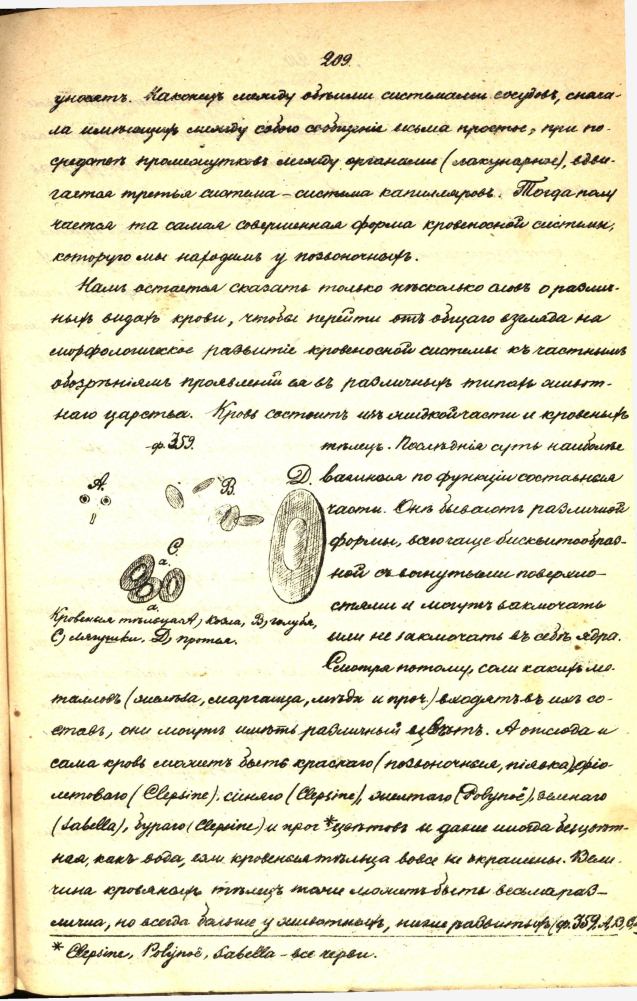 209.
уносятъ. Наконецъ между обѣими системами сосудовъ, снача-
ла имѣющихъ между собою сообщеніе весьма простое, при по-
средствѣ промежутковъ между органами (лакунарное), вдви-
гается третья система – система капилляровъ. Тогда полу
чается та самая совершенная форма кровеносной системы,
которую мы находимъ у позвоночныхъ.
Намъ остается сказать только нѣсколько словъ о различ-
ныхъ видахъ крови, чтобы перейти отъ общаго взгляда на
морфологическое развитіе кровеносной системы къ частнымъ
обозрѣніямъ проявленій ея въ различныхъ типахъ живот-
наго царства. Кровь состоитъ изъ жидкой части и кровеныхъ
ф. 359.
A.
B.
D.
C.
a.
a.
Кровеныя тѣльца A) козла, B) голубя,
C) лягушки, D) протея.
тѣлецъ. Послѣднія суть наиболѣе
важныя по функціи составныя
части. Онѣ бываютъ различной
формы, всего чаще бисквитообраз-
ной съ вогнутыми поверхно-
стями и могутъ заключать
или не заключать въ себѣ ядра.
Смотря потому, соли какихъ ме-
талловъ (желѣза, марганца, мѣди и проч.) входятъ въ ихъ со-
ставъ, они могутъ имѣть различный цвѣтъ. А отсюда и
сама кровь можетъ быть краснаго (позвоночныя, піявка), фіо-
летоваго (Clepsine), синяго (Clepsine), желтаго (Polynoë), зеленаго
(Sabella), бураго (Clepsine) и проч* цвѣтовъ и даже иногда безцвѣт-
ная, какъ вода, если кровеныя тѣльца вовсе не окрашены. Вели-
чина кровяныхъ тѣлецъ тоже можетъ быть весьма раз-
лична, но всегда больше у животныхъ, ниже развитыхъ (ф. 359, A, B, C,
* Clepsine, Polynoë, Sabella – все черви.